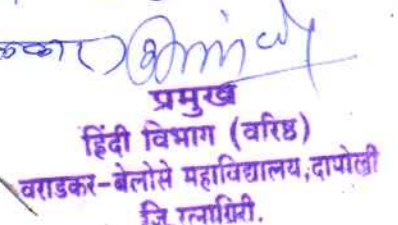 प्रमुख
हिंदी विभाग (वरिष्ठ)
वराडकर-बेलोसे महाविद्यालय,दापोली
जि रत्नागिरी.